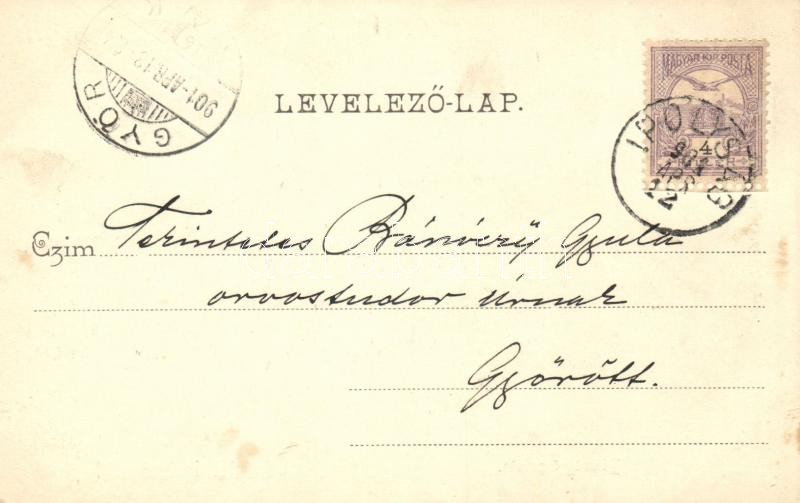 GYŐR
901 APR. 12
LEVELEZŐ-LAP.
MAGYAR KIR. POSTA
4
IPOLYSÁG
901
APR
12
Czim Tekintetes Gyula
orvostudor úrnak
Győrött.